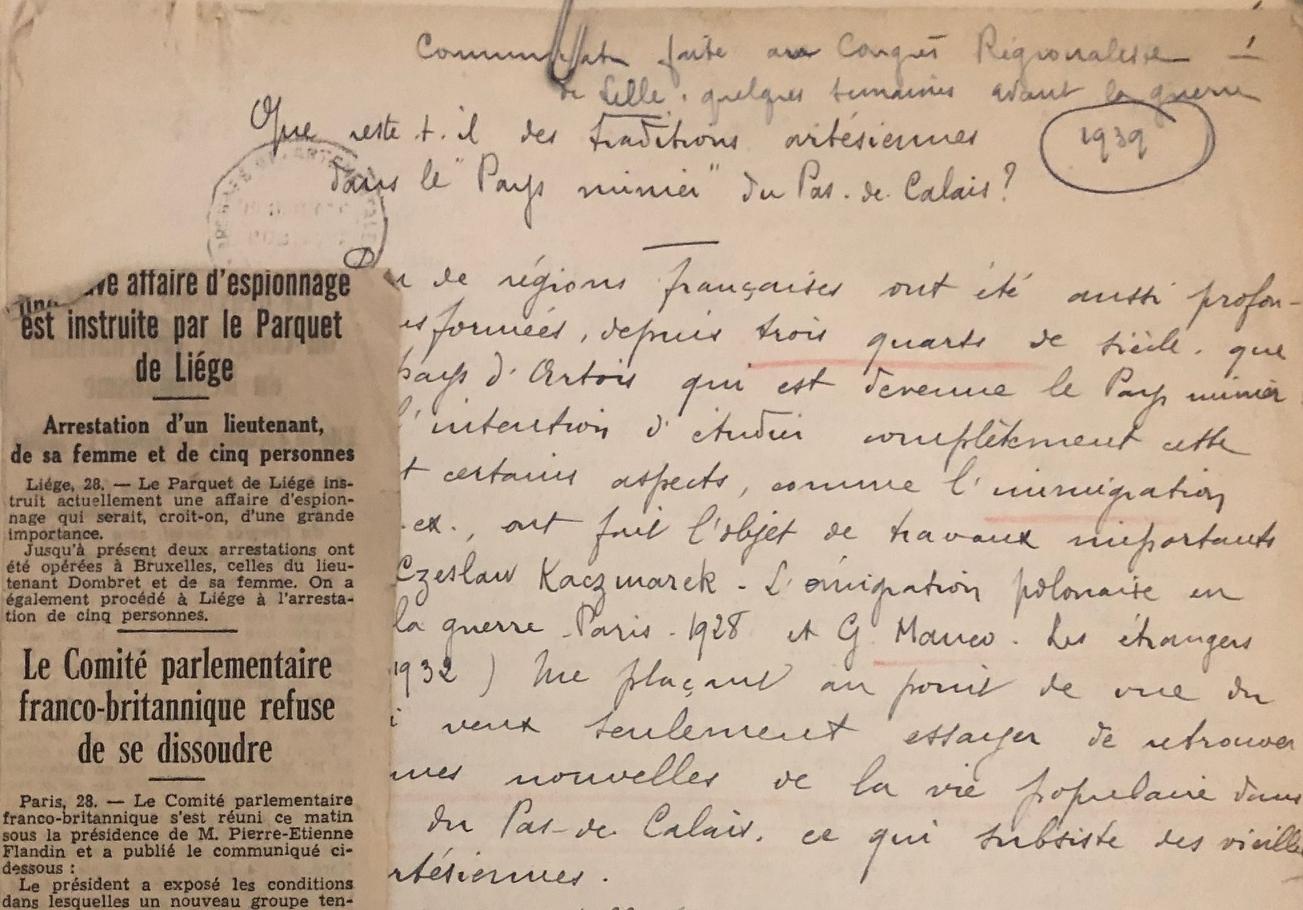 faite au Congrès Régionaliste 1
de Lille, quelques semaines avant la guerre
1939
Que reste-t-il des traditions artésiennes
dans le "Pays minier" du Pas-de-Calais?
de régions françaises ont été aussi profon-
formées, depuis trois quarts de siècle, que
pays d'Artois qui est devenue le Pays minier.
l'intention d'étudier complètement cette
t certains aspects, comme l'immigration
.ex., ont fait l'objet de travaux importants
Czeslaw Kaczmarek - L'émigration polonaise en
la guerre - Paris - 1928 et G. Mauco - Les étrangers
1932) Me plaçant au point de vue du
veux seulement essayer de retrouver
mes nouvelles de la vie populaire dans
du Pas-de-Calais, ce qui subsiste des vieilles
rtésiennes.
ve affaire d'espionnage
est instruite par le Parquet
de Liége
Arrestation d'un lieutenant,
de sa femme et de cinq personnes
Liége, 28. — Le Parquet de Liége ins-
truit actuellement une affaire d'espion-
nage qui serait, croit-on, d'une grande
importance.
Jusqu'à présent deux arrestations ont
été opérées à Bruxelles, celles du lieu-
tenant Dombret et de sa femme. On a
également procédé à Liége à l'arresta-
tion de cinq personnes.
Le Comité parlementaire
franco-britannique refuse
de se dissoudre
Paris, 28. — Le Comité parlementaire
franco-britannique s'est réuni ce matin
sous la présidence de M. Pierre-Etienne
Flandin et a publié le communiqué ci-
dessous :
Le président a exposé les conditions
dans lesquelles un nouveau groupe ten-